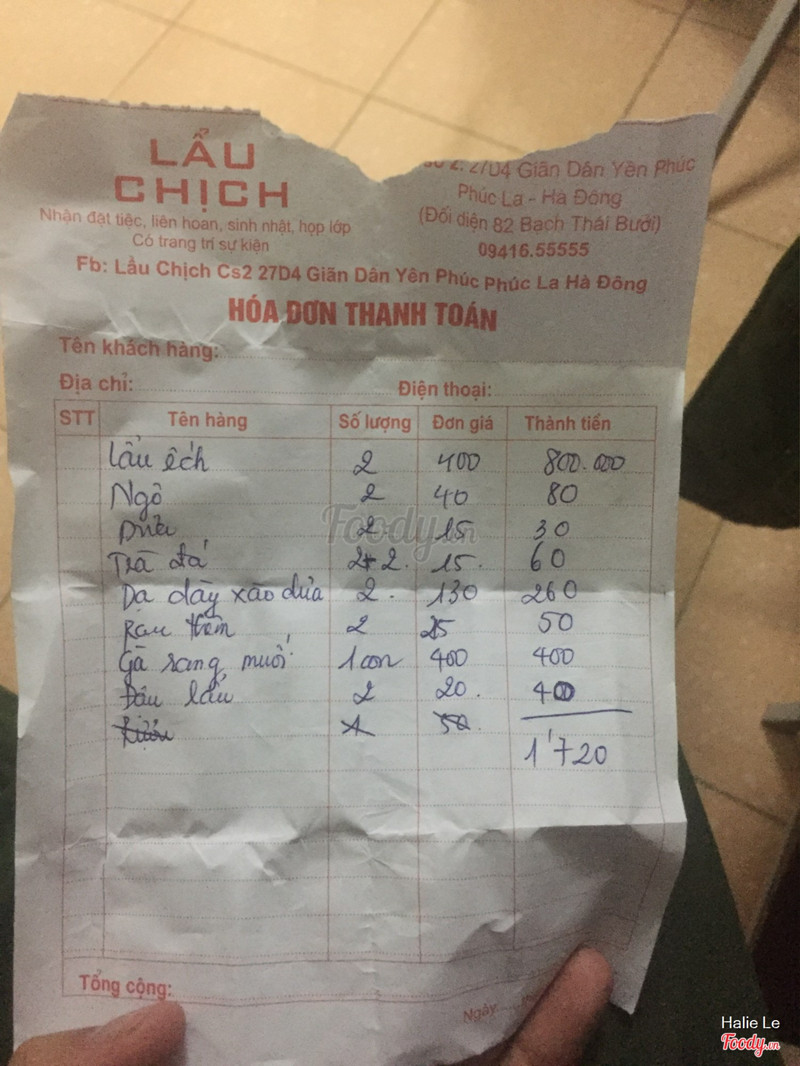 LẨU
CHỊCH
Nhận đặt tiệc, liên hoan, sinh nhật, họp lớp
Có trang trí sự kiện
2. 27D4 Giãn Dân Yên Phúc
Phúc La - Hà Đông
(Đối diện 82 Bạch Thái Bưởi)
09416.55555
Fb: Lẩu Chịch Cs2 27D4 Giãn Dân Yên Phúc Phúc La Hà Đông
HÓA ĐƠN THANH TOÁN
Tên khách hàng:
Địa chỉ: Điện thoại:
STT Tên hàng Số lượng Đơn giá Thành tiền
Lẩu ếch 2 400 800.000
Ngô 2 40 80
Dứa 2 15 30
Trà đá 2+2. 15. 60
Dạ dày xào dứa 2. 130 260
Rau thêm 2 25 50
Gà rang muối 1 con 400 400
Đậu lẩu 2 20. 40
1 50
1'720
Tổng cộng:
Ngày
Foody.vn
Halie Le
Foody.vn